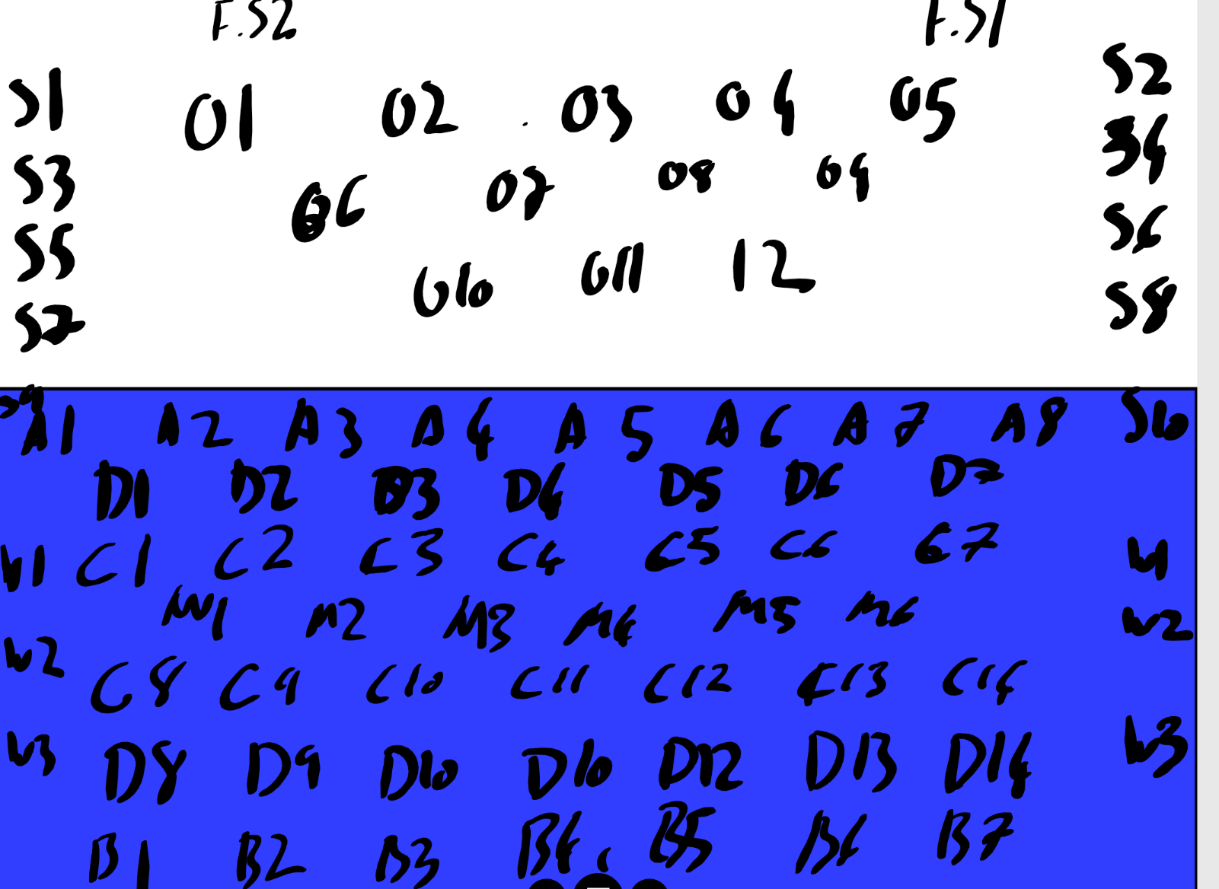 F.S2 F.S1
S1 01 02 03 04 05 S2
S3 06 07 08 09 S4
S5 010 011 12 S6
S7 S8
S9 A1 A2 A3 A4 A5 A6 A7 A8 S10
D1 D2 D3 D4 D5 D6 D7
W1 C1 C2 C3 C4 C5 C6 C7 W1
M1 M2 M3 M4 M5 M6 W2
W2 C8 C9 C10 C11 C12 C13 C14
W3 D8 D9 D10 D10 D12 D13 D14 W3
B1 B2 B3 B4 B5 B6 B7